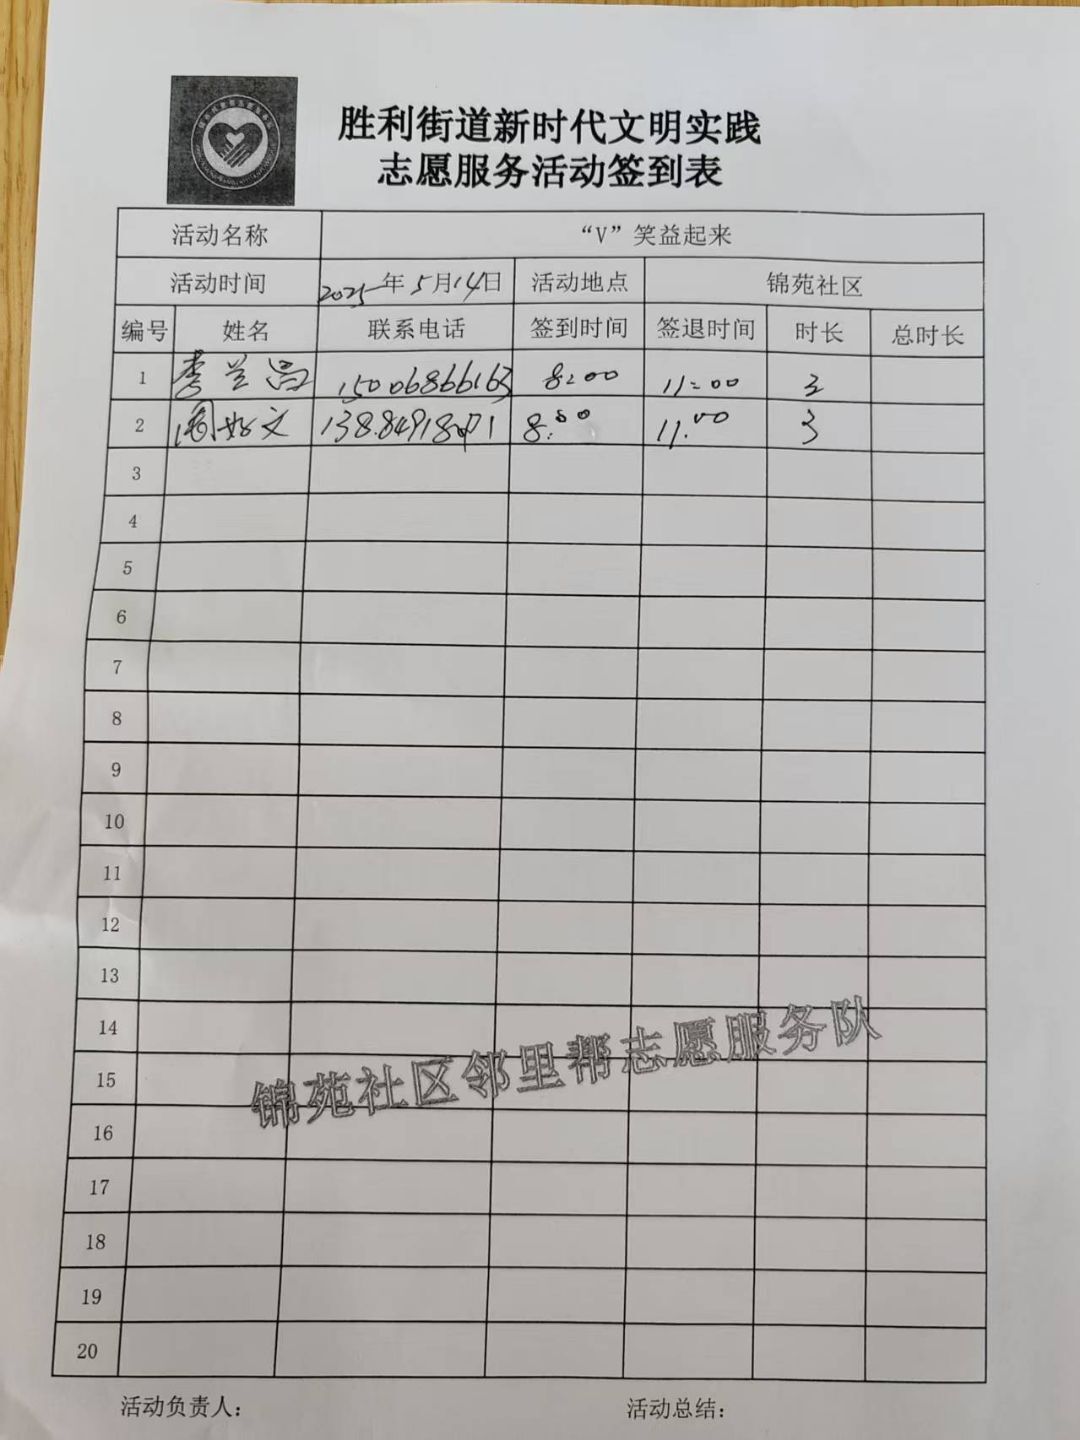 胜利街道新时代文明实践
志愿服务活动签到表
活动名称 “V”笑益起来
活动时间 2025年5月14日 活动地点 锦苑社区
编号 姓名 联系电话 签到时间 签退时间 时长 总时长
1 李兰 15006866163 8:00 11:00 3
2 周好文 8:00 11:00 3
3
4
5
6
7
8
9
10
11
12
13
14
15
16
17
18
19
20
锦苑社区邻里帮志愿服务队
活动负责人： 活动总结：